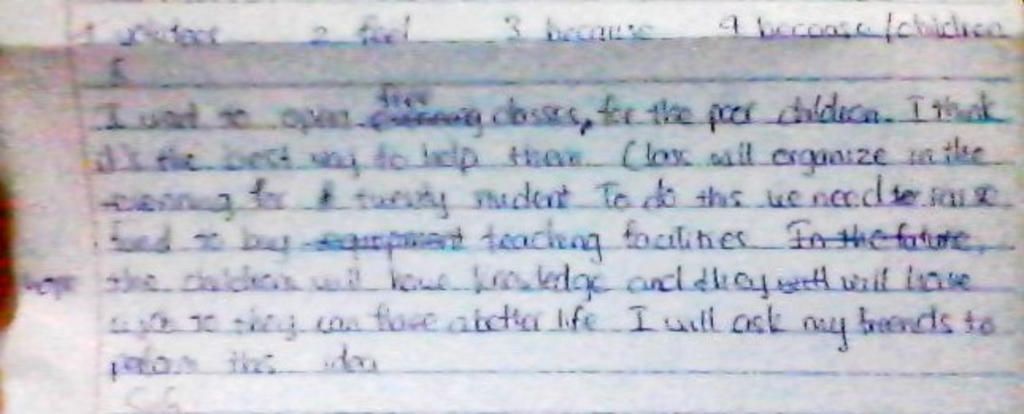 1 volunteer 2 feel 3 because 4 because / children
5
I want to open free evening classes, for the poor children. I think
it's the best way to help them. Class will organize in the
evening for twenty student To do this we need to raise
fund to buy equipment teaching facilities In the future,
hope the children will have knowledge and they will have
so they can have a better life I will ask my friends to
perform this idea